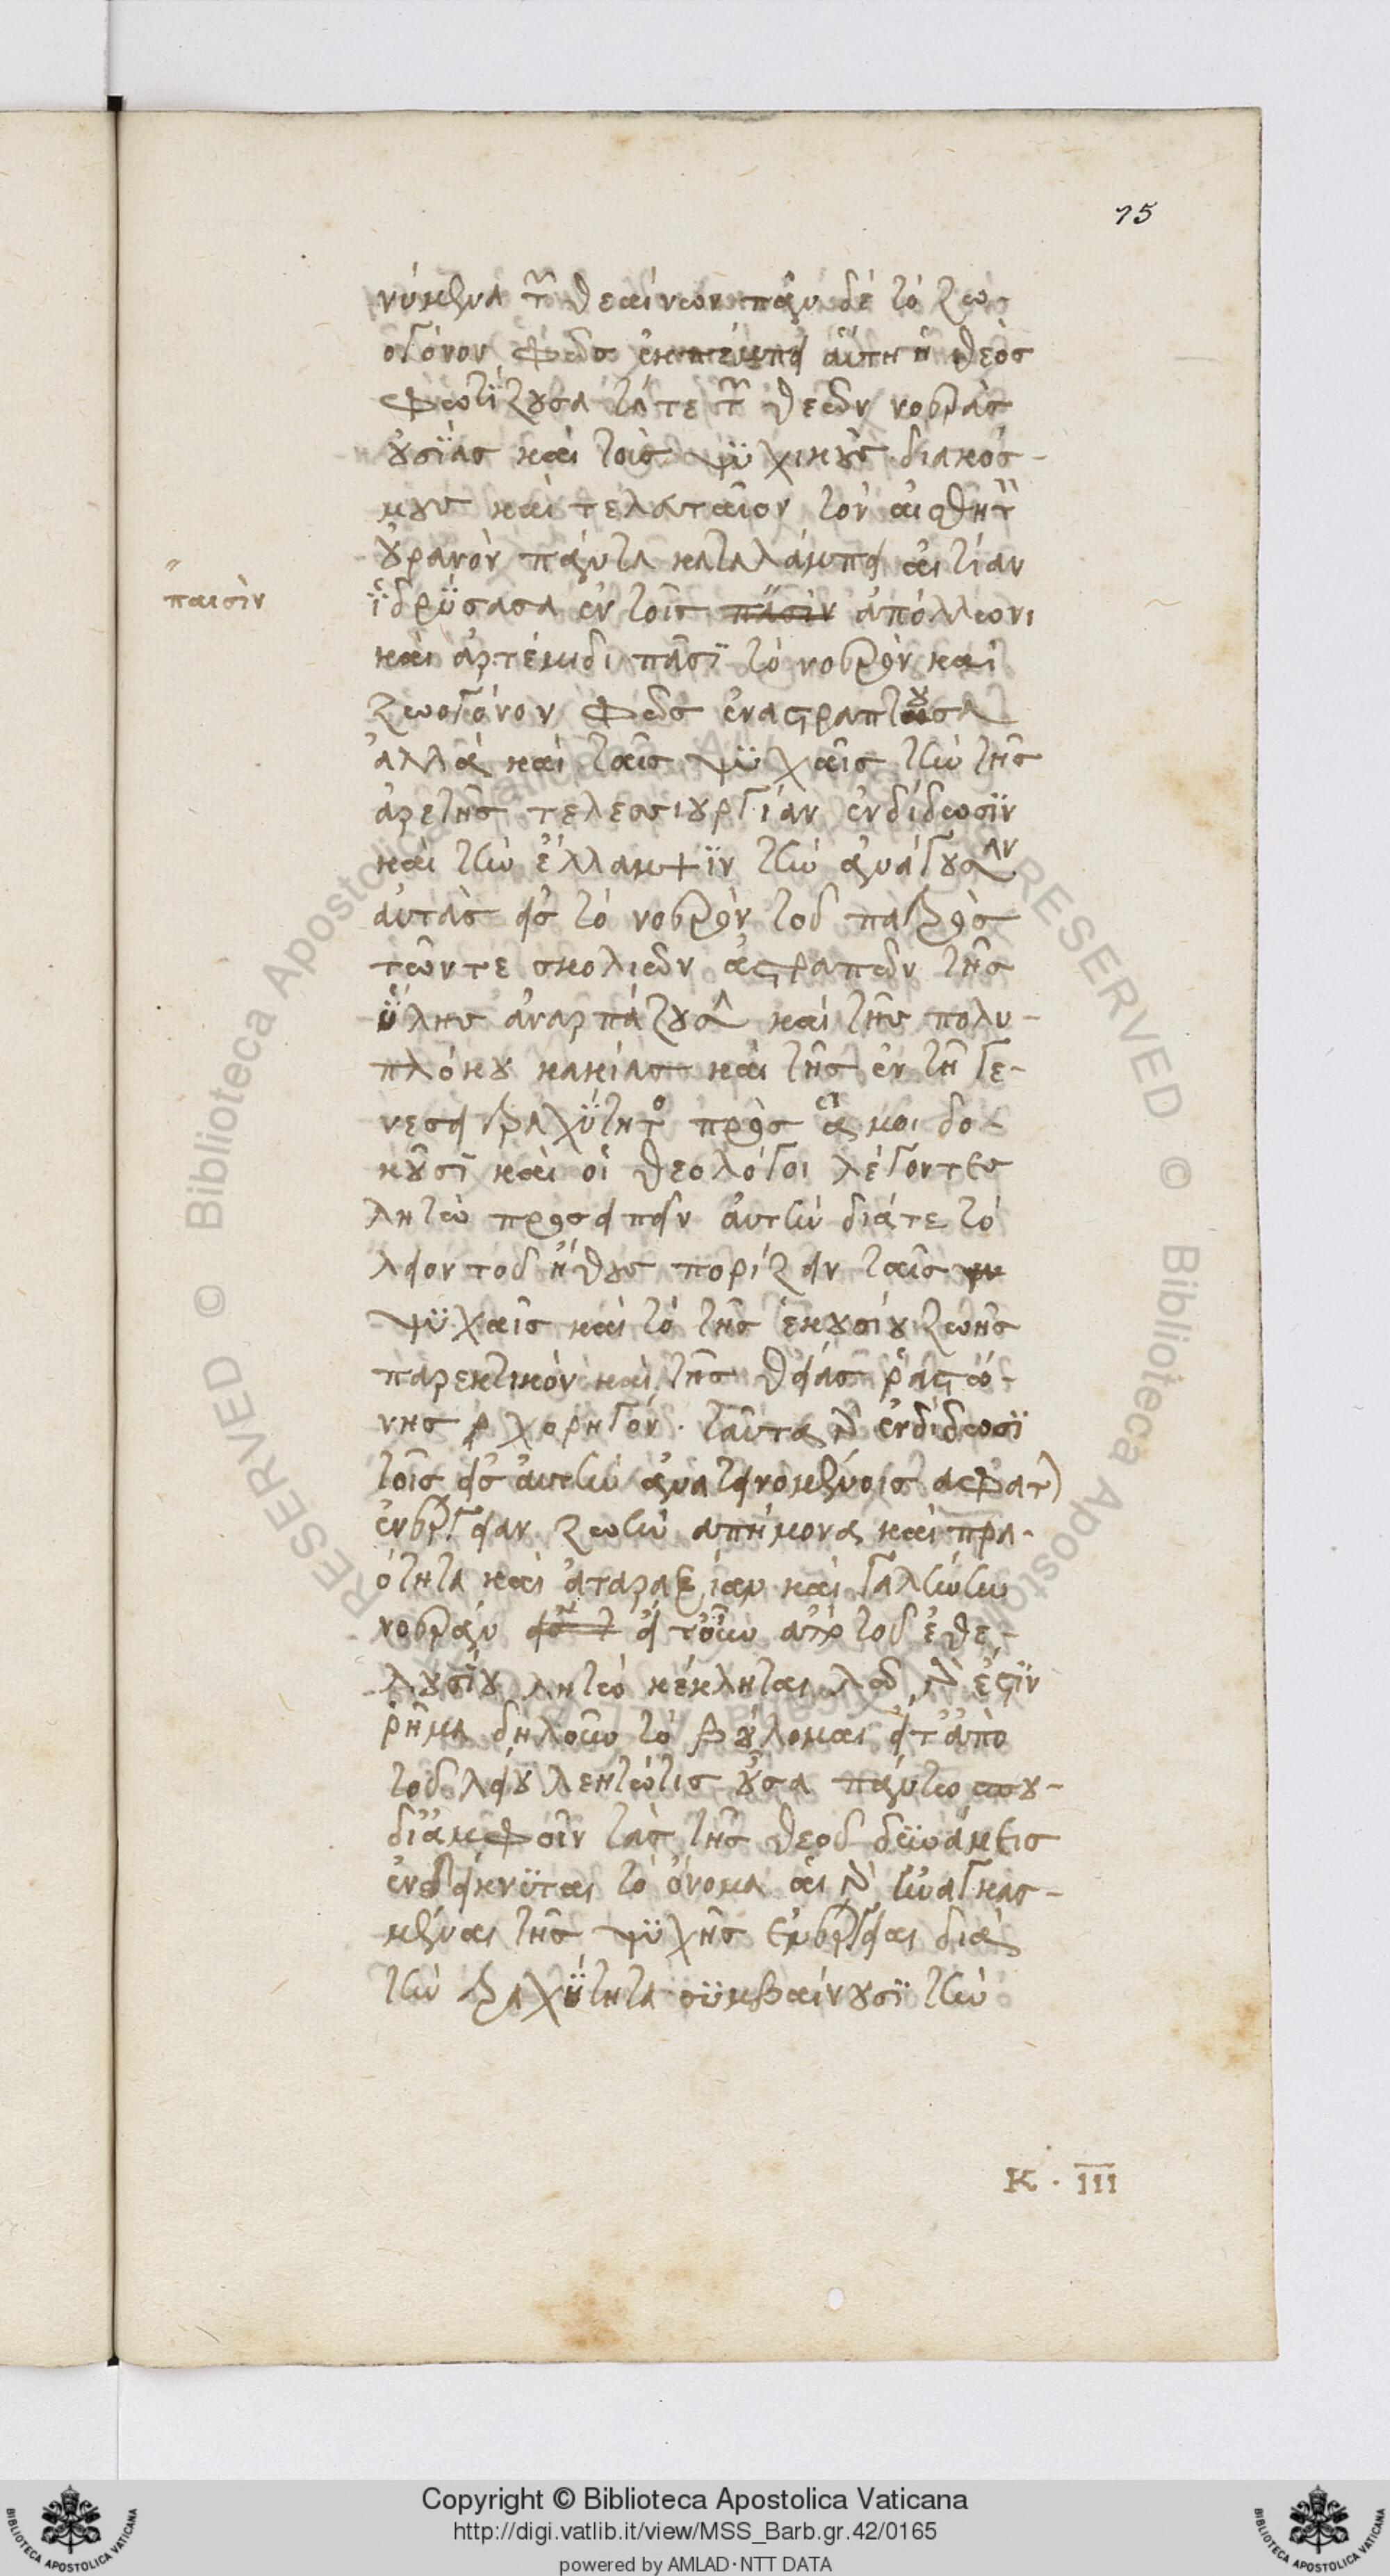 75
νύμενα τῶν θεαίνων πᾶν δὲ τὸ ζω-
ογόνον φῶς ἐκπέμπει αὕτη ἡ θεὸς
φωτίζουσα τάτε τῶν θεῶν νοερὰς
οὐσίας καὶ τοὺς ψυχικοὺς διακόσ-
μους καὶ τελευταῖον τὸν αἰσθητὸν
οὐρανὸν πάντα καταλάμπει αἰτίαν
παισὶν
ἱδρύσασα ἐν τοῖς πᾶσιν ἀπόλλωνι
καὶ ἀρτέμιδι πᾶσι τὸ νοερὸν καὶ
ζωογόνον φῶς ἐναστραπτουσα
ἀλλὰ καὶ ταῖς ψυχαῖς τὴν τῆς
ἀρετῆς τελεσσιουργίαν ἐνδίδωσιν
καὶ τὴν ἔλλαμψιν τὴν ἀνάγουσαν
αὐτὰς εἰς τὸ νοερὸν τοῦ πατρὸς
τῶντε σκολιῶν ἀστραπῶν τῆς
ὕλης ἀναρπάζουσα καὶ τῆς πολυ-
πλόκου κακίας καὶ τῆς ἐν τῇ γε-
νέσει τραχύτητος πρὸς ἅ μοι δο-
κοῦσι καὶ οἱ θεολόγοι λέγοντες
λητὼ προσειπεῖν αὐτὴν διάτε τὸ
λεῖον τοῦ ἤθους πορίζειν ταῖς
ψυχαῖς καὶ τὸ τῆς ἑκουσίου ζωῆς
παρεκτικὸν καὶ τῆς θείας ῥαστώ-
νης χορηγόν. ταῦτα γὰρ ἐνδίδωσι
τοῖς εἰς αὐτὴν ἀνατεινομένοις ἄφατ)
ἐνέργειαν ζωὴν ἀπήμονα καὶ πρα-
ότητα καὶ ἀταραξίαν καὶ γαλήνην
νοερὰν εἴτουν ἀπὸ τοῦ ἐθε-
λουσίου λητὼ κέκληται λῶ γάρ ἐστιν
ῥῆμα δηλοῦν τὸ βούλομαι εἴτ ἀπὸ
τοῦ λείου λεητώτις οὖσα πάντως ου-
διἀμφοῖν τὰς τῆς θεοῦ δυνάμεις
ἐνδείκνυται τὸ ὄνομα αἱ γὰρ ἠναγκασ-
μέναι τῆς ψυχῆς ἐνέργειαι διὰ
τὴν τραχύτητα συμβαίνουσι τὴν
K · III
Copyright © Biblioteca Apostolica Vaticana
http://digi.vatlib.it/view/MSS_Barb.gr.42/0165
powered by AMLAD·NTT DATA